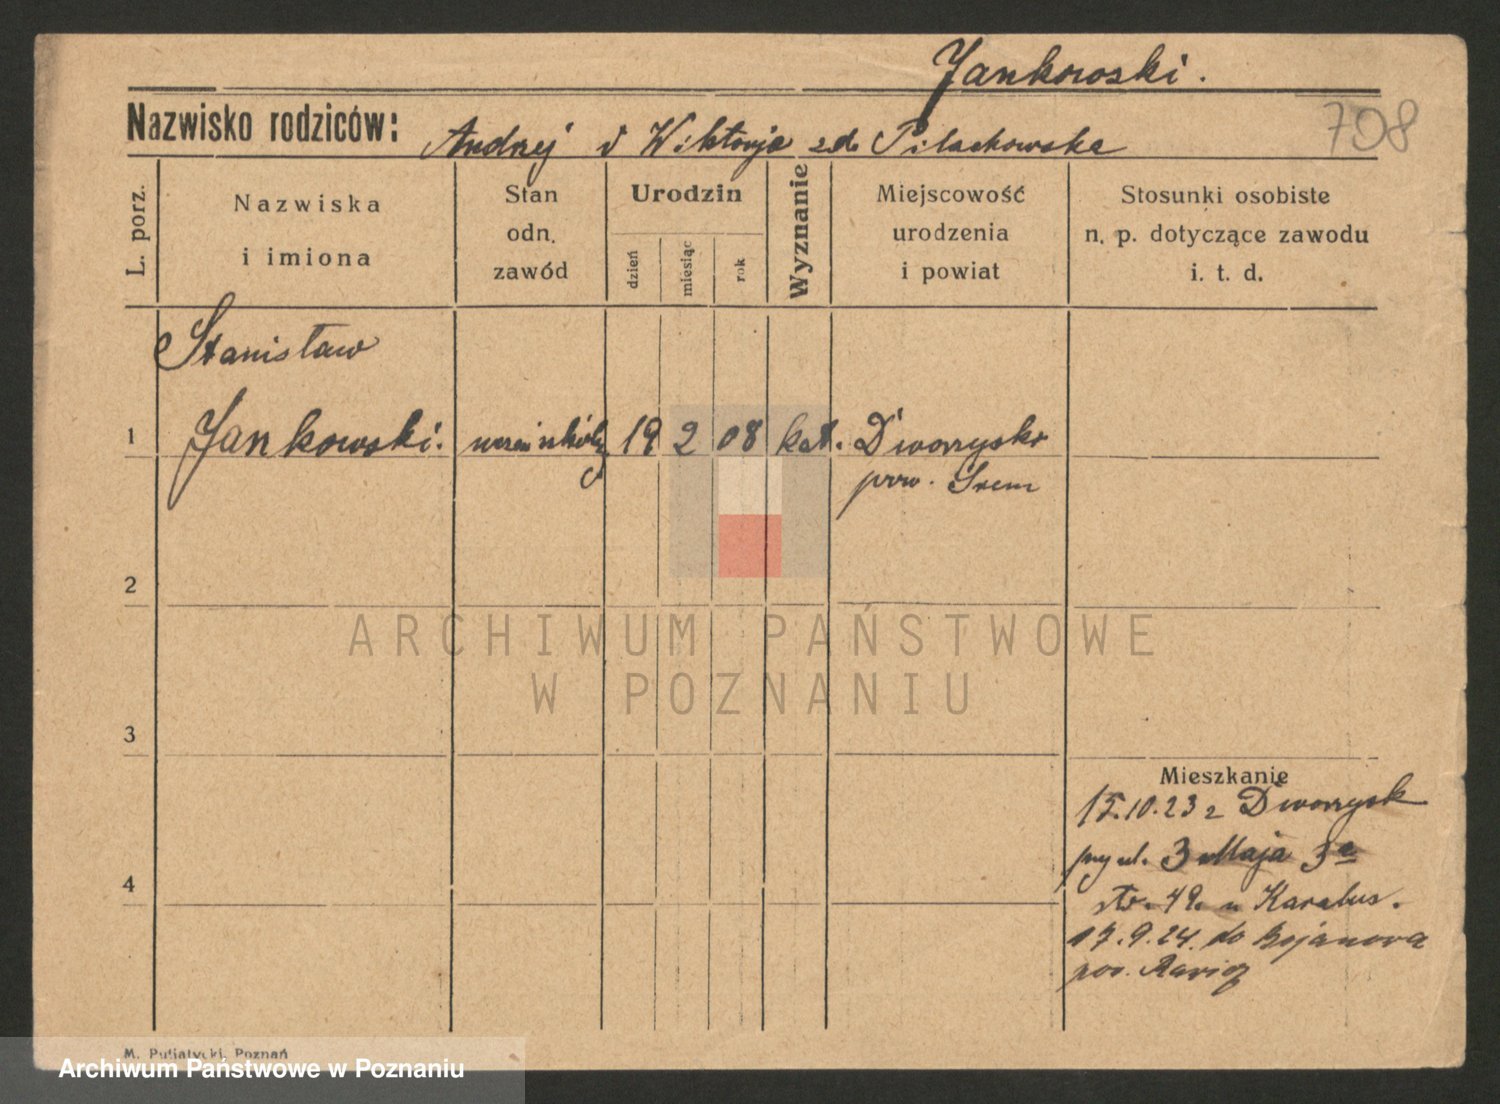 Jankowski.
Nazwisko rodziców: Andrzej i Wiktorja zd. Pilachowska
708
L. porz.
Nazwiska
i imiona
Stan
odn.
zawód
Urodzin
dzień
miesiąc
rok
Wyznanie
Miejscowość
urodzenia
i powiat
Stosunki osobiste
n. p. dotyczące zawodu
i. t. d.
Stanisław
1 Jankowski. uczeń szkoły 19 2 08 kat. Dworzysko
pow. Śrem
2
ARCHIWUM PAŃSTWOWE
W POZNANIU
3
Mieszkanie
15.10.23 z Dworzysk
przy ul. 3 Maja 3a
str. 49. u Karalus.
17.9.24. do Bojanowa
pow. Rawicz
4
M. Putiatycki, Poznań
Archiwum Państwowe w Poznaniu